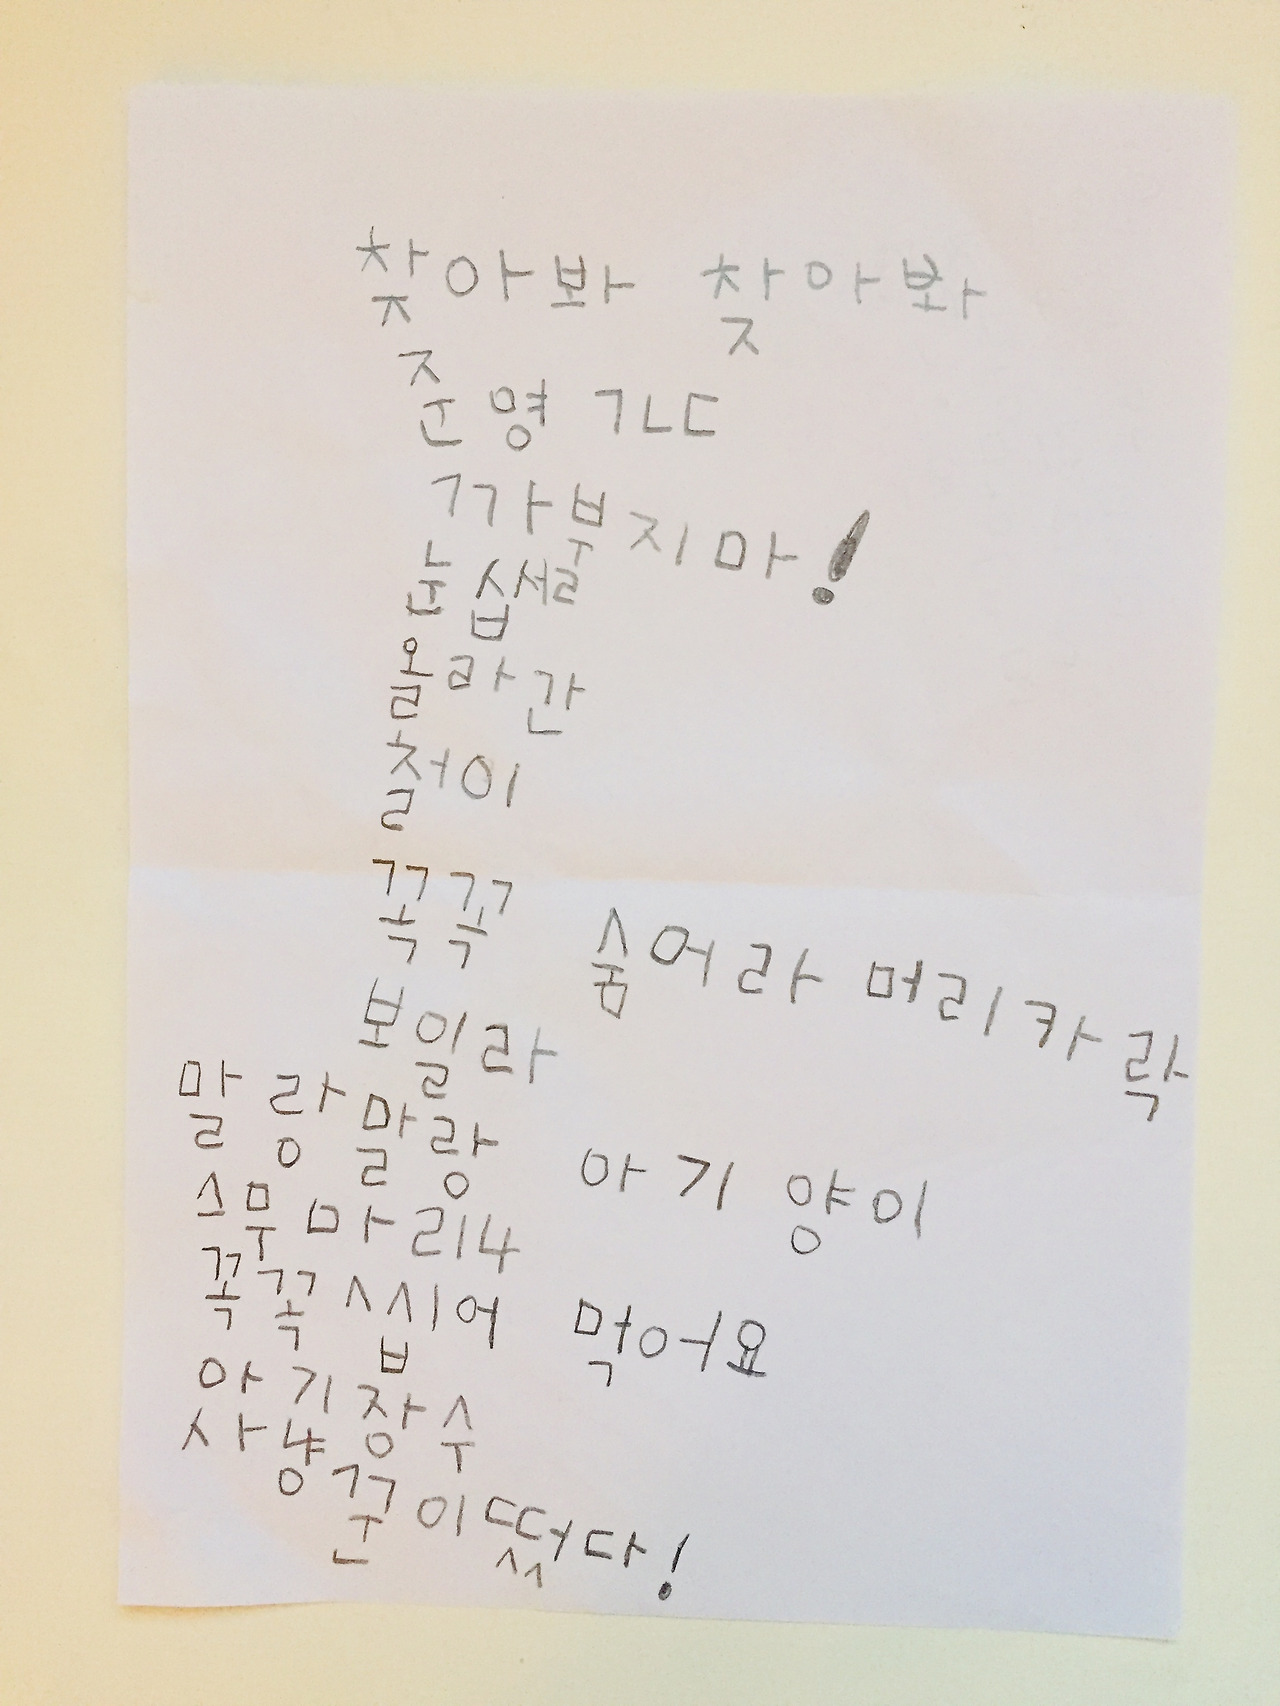 찾아봐 찾아봐
준영 ㄱㄴㄷ
까부지마!
눈썹를
올라간
철이
꼭꼭 숨어라 머리카락
보일라
말랑말랑 아기 양이
스무마리4
꼭꼭 씹어 먹어요
아기장수
사냥꾼이떴다!